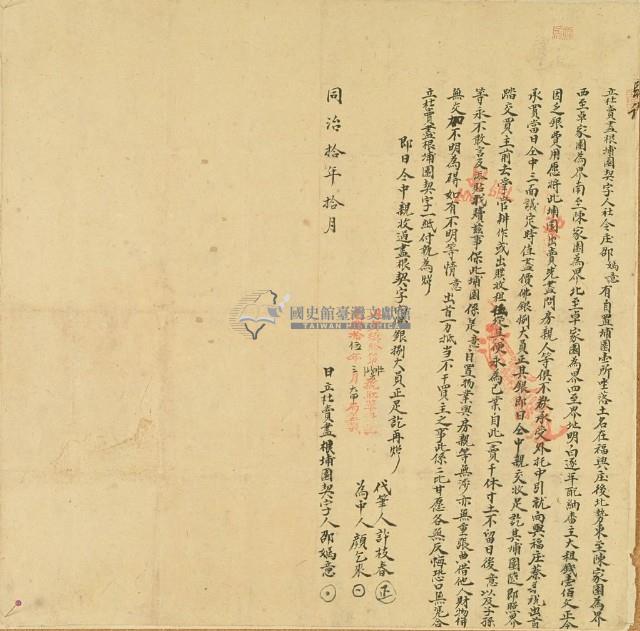 立杜賣盡根埔園契字人社令庄邵媽意有自置埔園壹所坐落土名在福興庄後北勢東至陳家園為界
西至卓家園為界南至陳家園為界北至卓家園為界四至界址明白逐年配納番主大租錢壹佰文正今
因乏銀費用愿將此埔園出賣先盡問房親人等俱不欲承受外托中引就向興福庄蔡
承買當日仝中三面議定時值盡價佛銀捌大員正其銀即日仝中親交收足訖其埔園隨即照界
踏交買主前去掌管耕作或出贌收租任從其便永為己業自此一賣千休寸土不留日後意以及子孫
等永不敢言及添貼找贖茲事保此埔園係是意自置物業與房親等無涉亦無重張典借他人財物併
無交加不明為碍如有不明等情意出首一力抵當不干買主之事此係二比甘愿各無反悔恐口無憑合
立杜賣盡根埔園契字一紙付執為炤
即日仝中親收過盡根契字銀捌大員正足訖再炤
代筆人許枝春
為中人顏乞來
同治拾年拾月 日立杜賣盡根埔園契字人邵媽意
國史館臺灣文獻館
TAIWAN HISTORICA